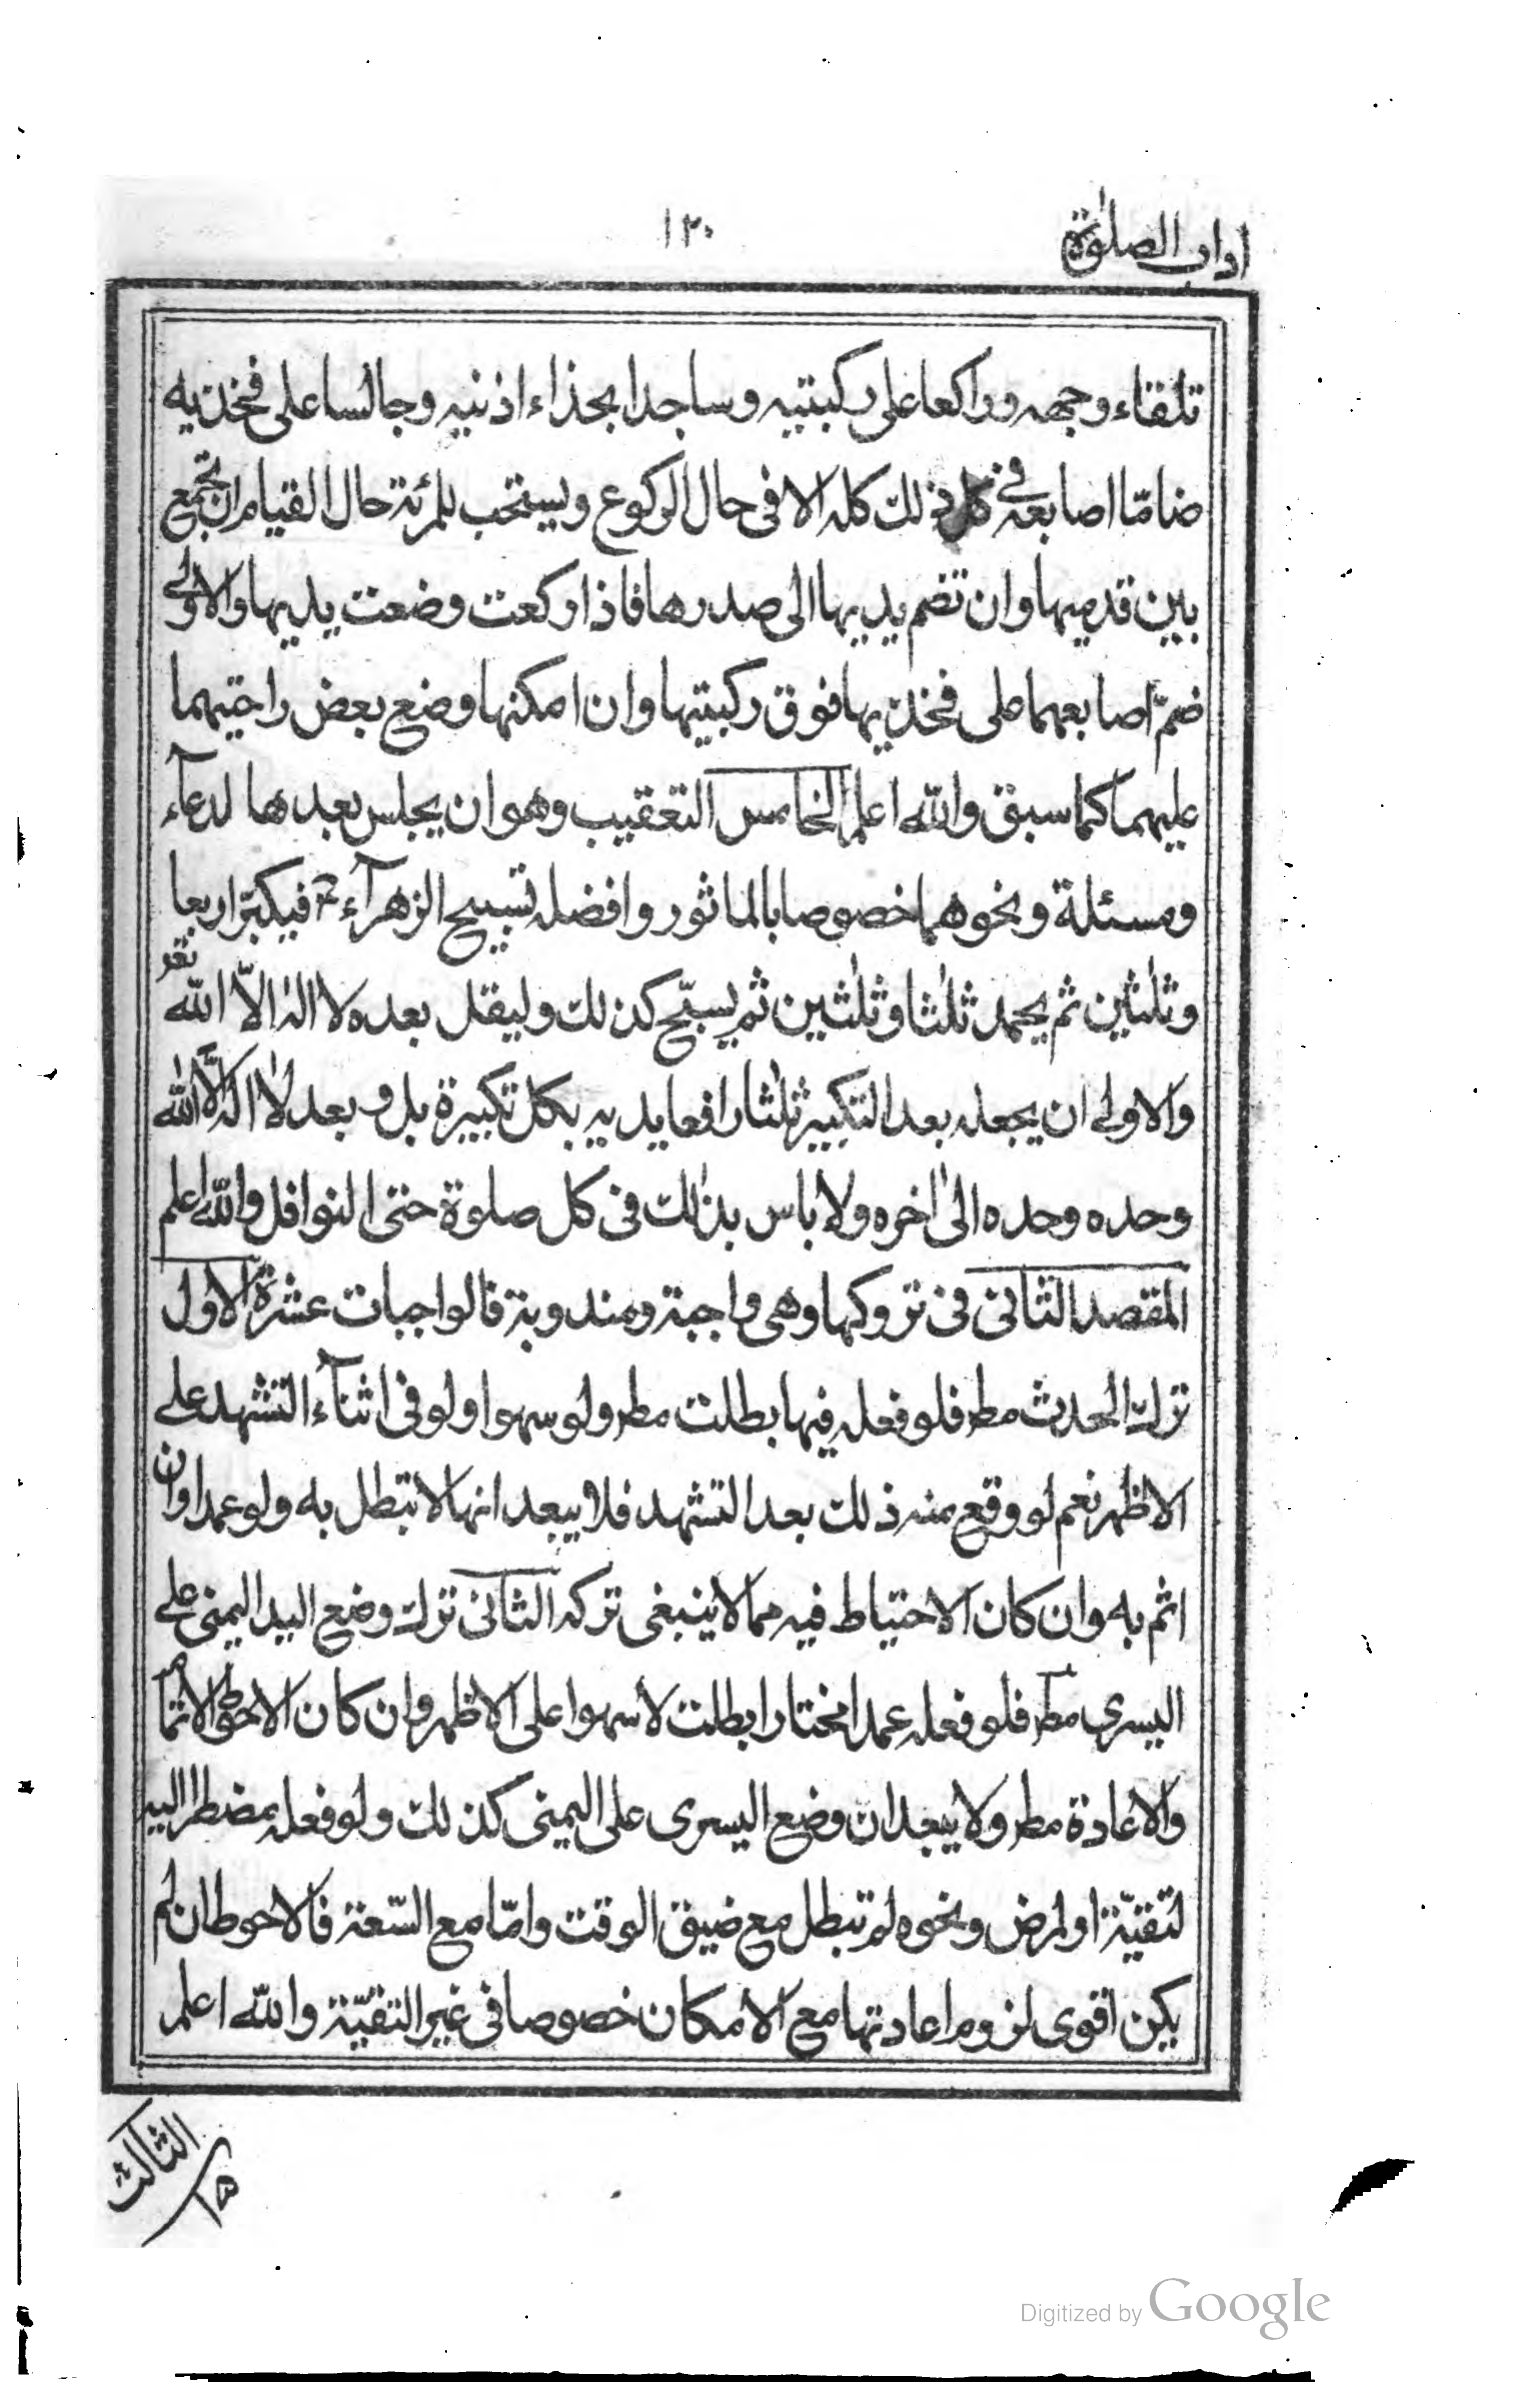 اداب الصلوٰة
١٢٠
تلقاء وجهه وراكعا على ركبتيه وساجدا بحذاء اذنيه وجالسا على فخذيه
ضامّا اصابعه في ذلك كله الا فى حال الركوع ويستحب للمرئة حال القيام ان تجمع
بين قدميها وان تضم يديها الى صدرها فاذا ركعت وضعت يديها والاولى
ضمّ اصابعهما على فخذيها فوق ركبتيها وان امكنها وضع بعض راحتيهما
عليهما كما سبق والله اعلم الخامس التعقيب وهو ان يجلس بعدها لدعآء
ومسئلة ونحوهما خصوصا بالماثور وافضله تسبيح الزهرآء ع فيكبّر اربعا
وثلثين ثم يحمد ثلثا وثلثين ثم يسبّح كذلك وليقل بعده لا اله الاّ الله
والاولى ان يجعله بعد التكبير ثلثا رافعا يديه بكل تكبيرة بل وبعد لا اله الا الله
وحده وحده الى اخره ولا باس بذلك فى كل صلوة حتى النوافل والله اعلم
المقصد الثانى فى تروكها وهى واجبة ومندوبة فالواجبات عشرة الاول
ترك الحدث مط فلو فعله فيها بطلت مط ولو سهوا ولو فى اثنآء التشهد على
الاظهر نعم لو وقع منه ذلك بعد التشهد فلا يبعد انها لا تبطل به ولو عمدا وان
اثم به وان كان الاحتياط فيه مما لا ينبغى تركه الثانى ترك وضع اليد اليمنى على
اليسرى مط فلو فعله عمدا مختارا بطلت لا سهوا على الاظهر وان كان الاحوط الاتمام
والاعادة مط ولا يبعد ان وضع اليسرى على اليمنى كذلك ولو فعله مضطرا اليه
لتقيّة او لمرض ونحوه لم تبطل مع ضيق الوقت وامّا مع السّعة فالاحوط ان لم
يكن اقوى لزوم اعادتها مع الامكان خصوصا فى غير التقيّة والله اعلم
الثالث
Digitized by Google